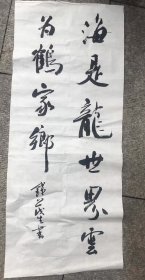 海是龍世界雲
为鶴家鄉